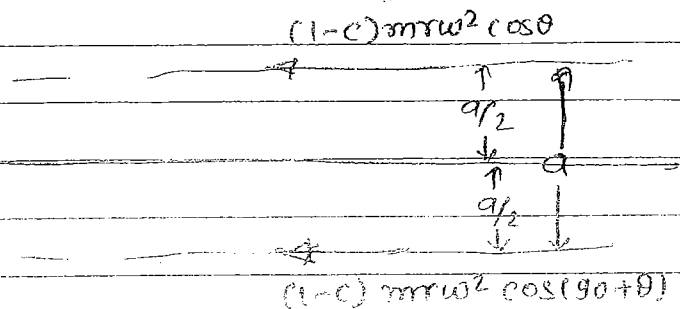 (1-c)mrω² cosθ
a/2
a
a/2
(1-c) mrω² cos(90+θ)